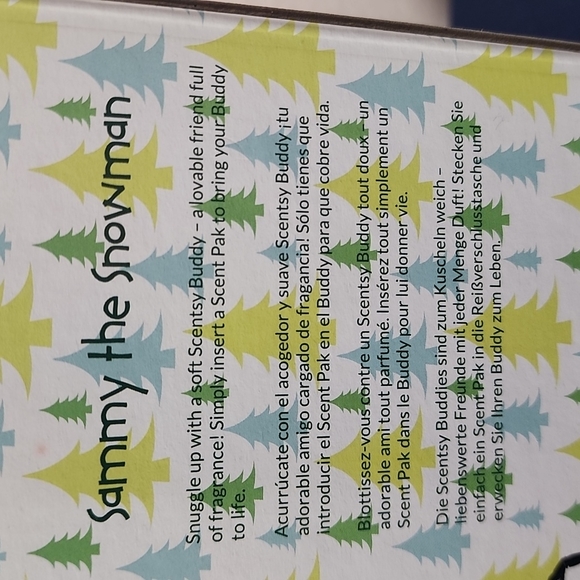 Sammy the Snowman
Snuggle up with a soft Scentsy Buddy – a lovable friend full
of fragrance! Simply insert a Scent Pak to bring your Buddy
to life.
Acurrúcate con el acogedor y suave Scentsy Buddy ¡tu
adorable amigo cargado de fragancia! Sólo tienes que
introducir el Scent Pak en el Buddy para que cobre vida.
Blottissez-vous contre un Scentsy Buddy tout doux – un
adorable ami tout parfumé. Insérez tout simplement un
Scent Pak dans le Buddy pour lui donner vie.
Die Scentsy Buddies sind zum Kuscheln weich –
liebenswerte Freunde mit jeder Menge Duft! Stecken Sie
einfach ein Scent Pak in die Reißverschlusstasche und
erwecken Sie Ihren Buddy zum Leben.